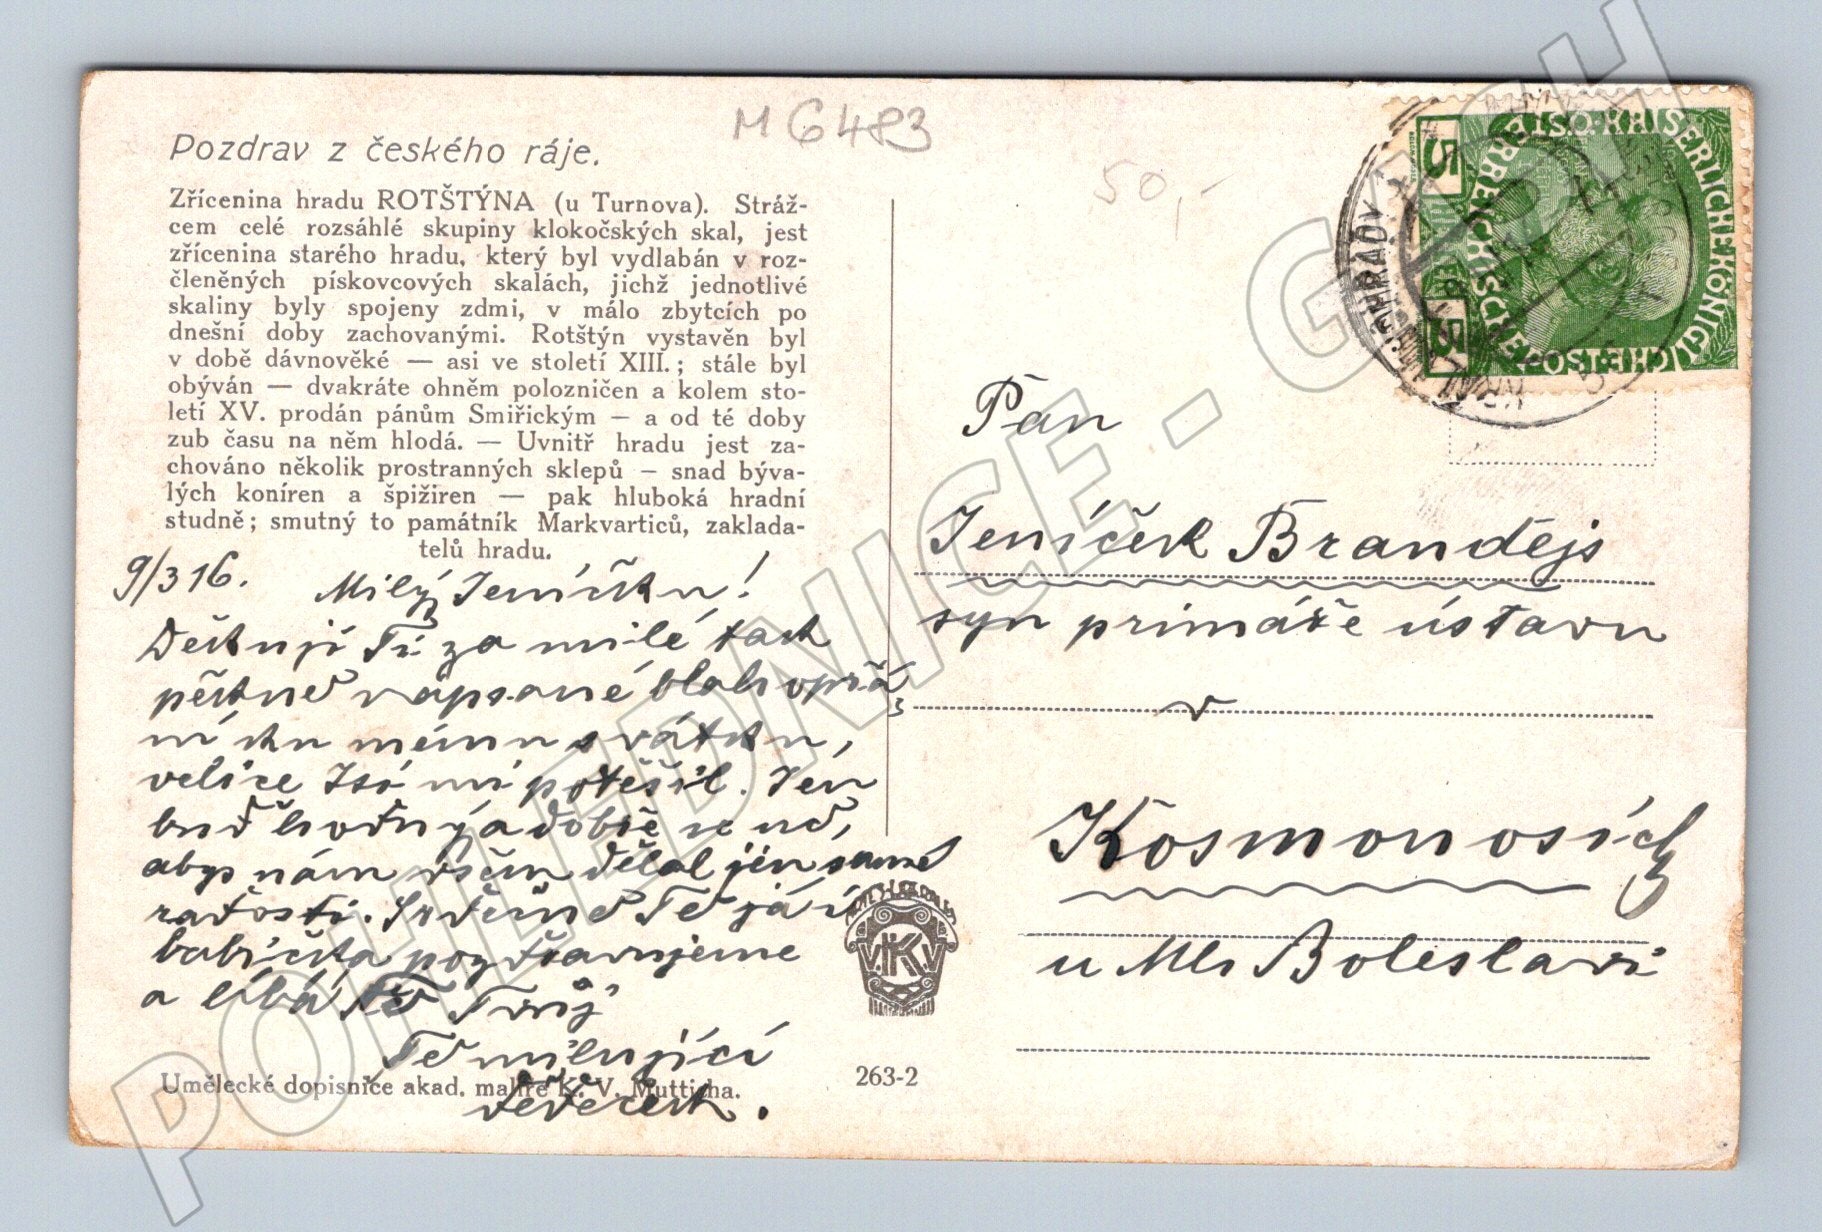 M 6483
50,-
Pozdrav z českého ráje.
Zřícenina hradu ROTŠTÝNA (u Turnova). Stráž-
cem celé rozsáhlé skupiny klokočských skal, jest
zřícenina starého hradu, který byl vydlabán v roz-
členěných pískovcových skalách, jichž jednotlivé
skaliny byly spojeny zdmi, v málo zbytcích po
dnešní doby zachovanými. Rotštýn vystavěn byl
v době dávnověké — asi ve století XIII.; stále byl
obýván — dvakráte ohněm polozničen a kolem sto-
letí XV. prodán pánům Smiřickým — a od té doby
zub času na něm hlodá. — Uvnitř hradu jest za-
chováno několik prostranných sklepů — snad býva-
lých koníren a špižiren — pak hluboká hradní
studně; smutný to památník Markvarticů, zaklada-
telů hradu.
9/3 16. Milý Jeníčku!
Děkuji Ti za milé tak
pěkně napsané blahopřá
ní ku mému svátku,
velice jsi mi potěšil. Jen
buď hodný a dobře se uč,
abys nám všem dělal jen samé
radosti. Srdečně Tě já i
babička pozdravujeme
a líbá Tě Tvůj
Tě milující
dědeček.
Umělecké dopisnice akad. malíře K. V. Mutticha.
263-2
V.K.V.
Pan
Jeníček Brandějs
syn primáře ústavu
v
Kosmonosích
u Ml. Boleslavi
KAISERLICHE KÖNIGLICHE
ÖSTERREICHISCHE POST
5
5
POHLEDNICE - GMCH